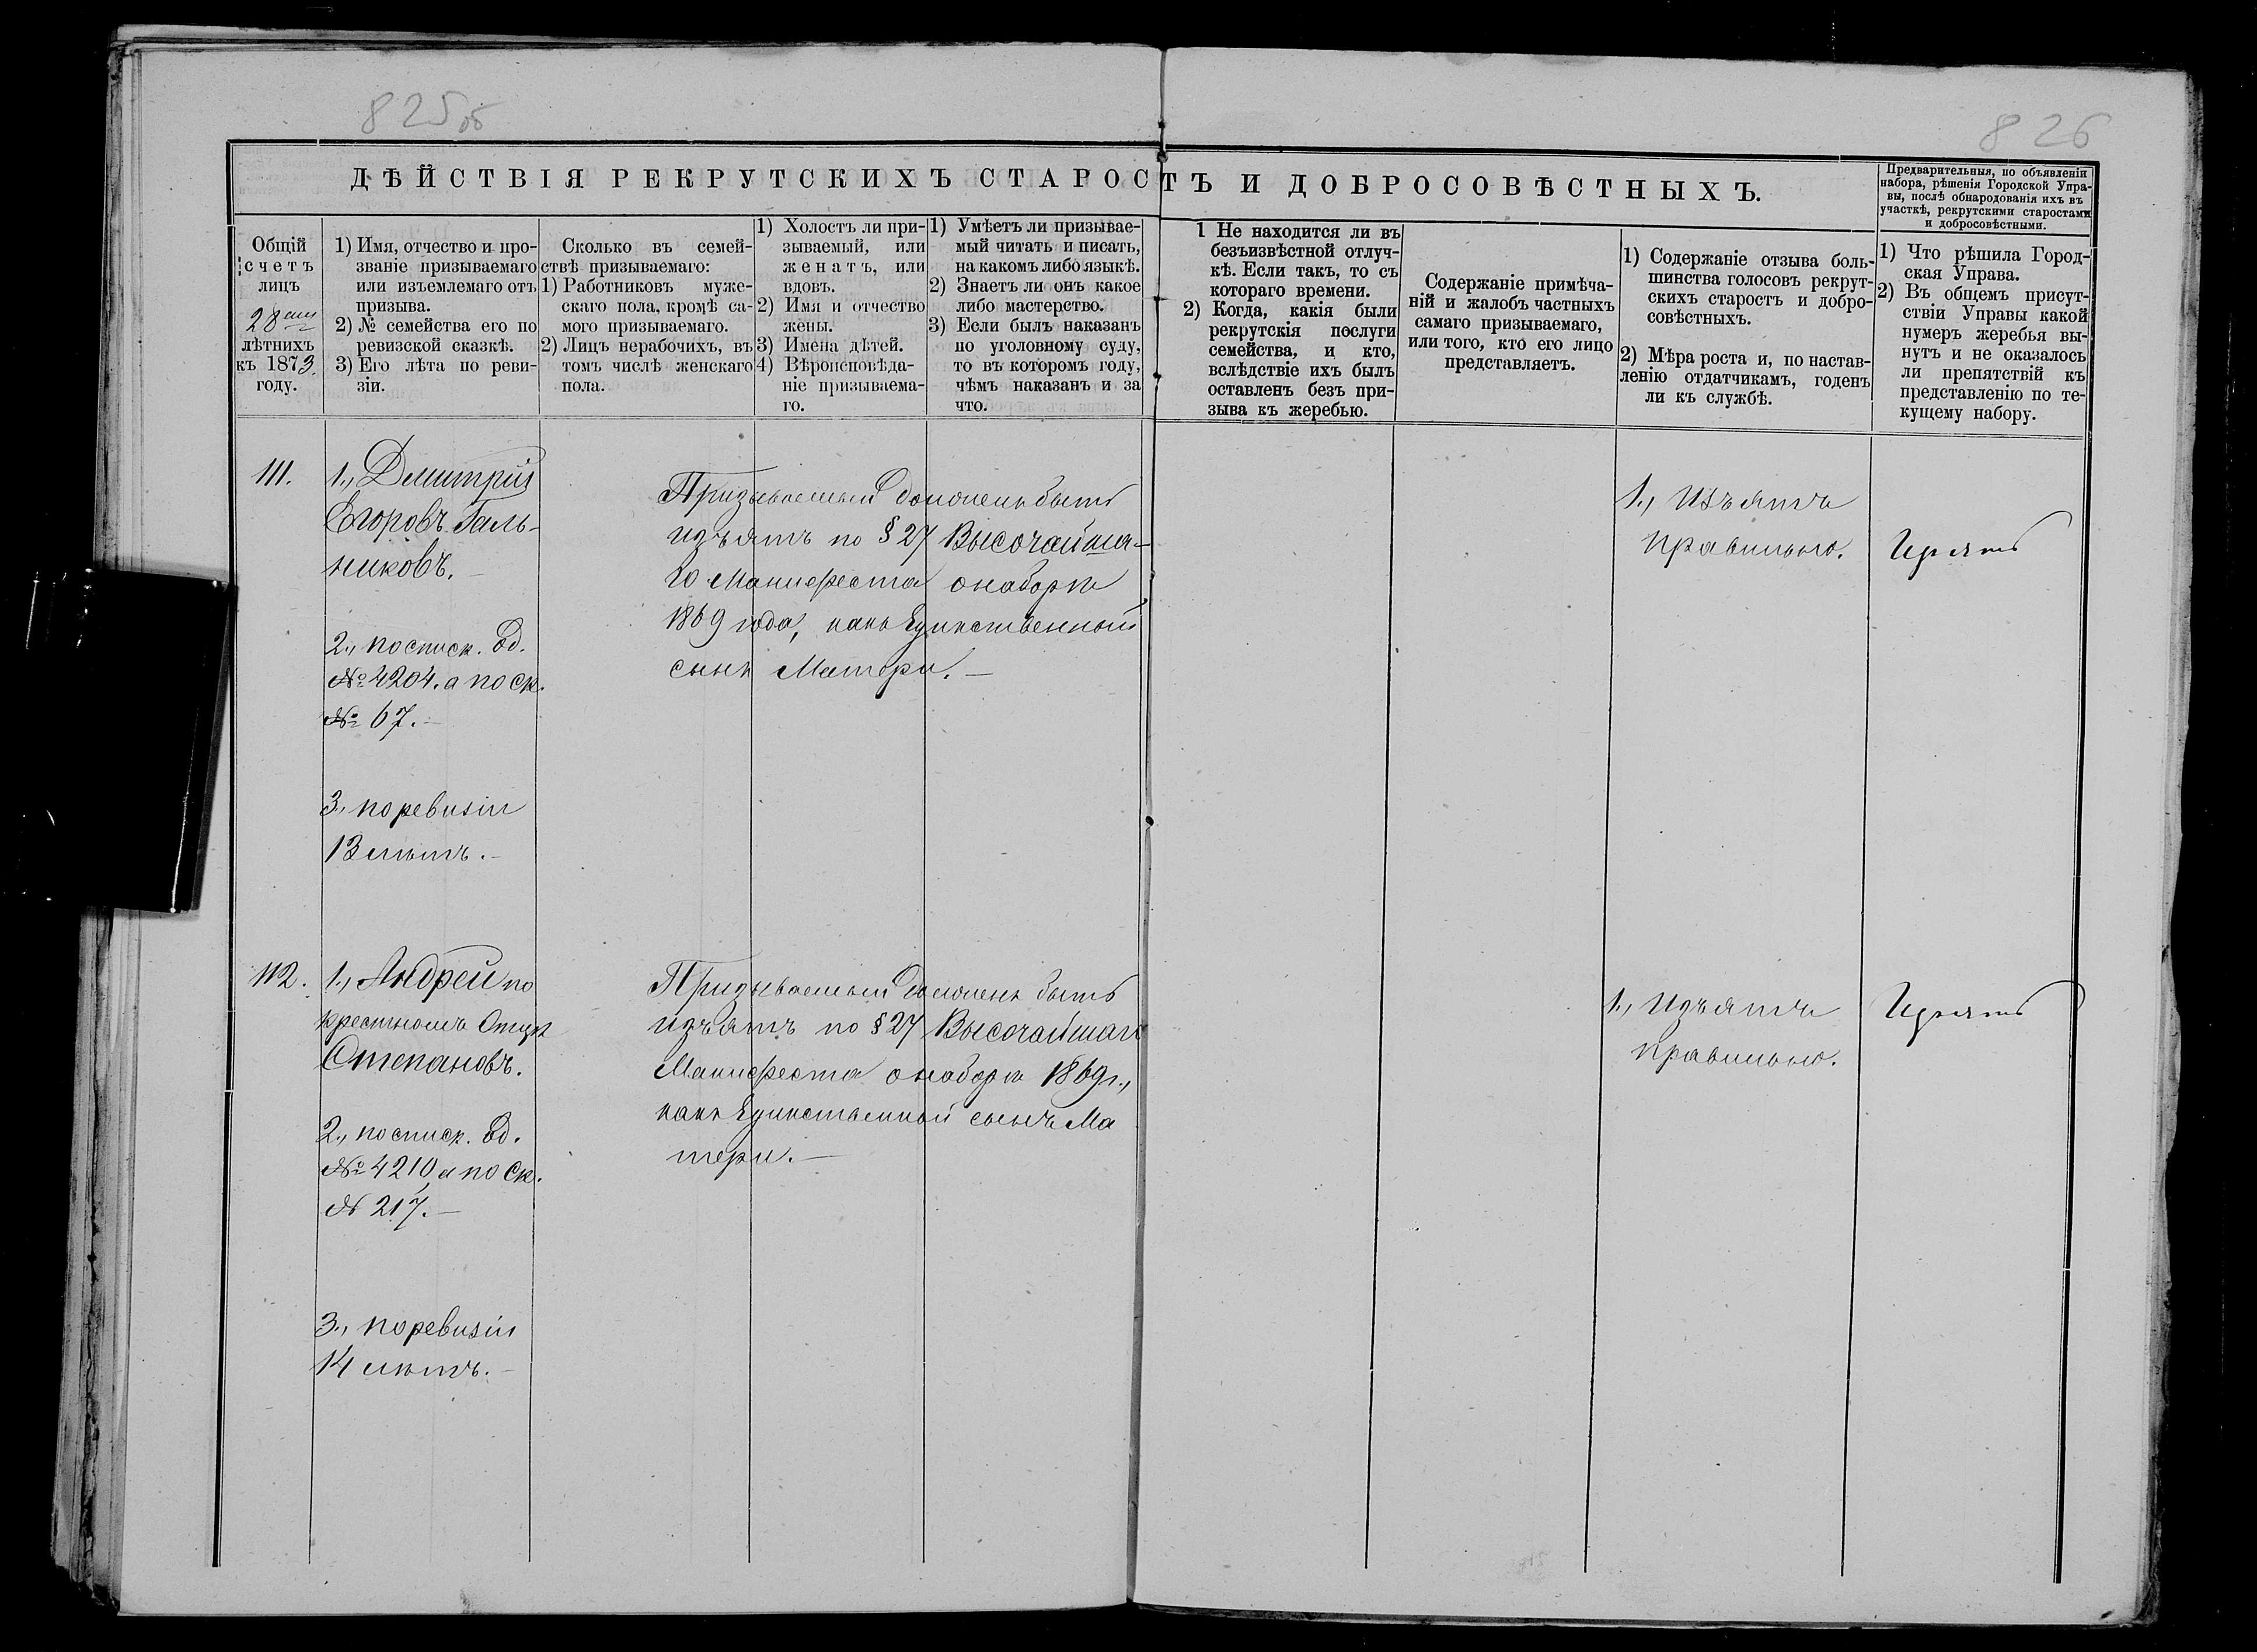 825об
826
ДѢЙСТВІЯ РЕКРУТСКИХЪ СТАРОСТЪ И ДОБРОСОВѢСТНЫХЪ.
Предварительныя, по объявленіи
набора, рѣшенія Городской Упра-
вы, послѣ обнародованія ихъ въ
участкѣ, рекрутскими старостами
и добросовѣстными.
Общій
счетъ
лицъ
28ми
лѣтнихъ
къ 1873.
году.
1) Имя, отчество и про-
званіе призываемаго
или изъемлемаго отъ
призыва.
2) № семейства его по
ревизской сказкѣ.
3) Его лѣта по реви-
зіи.
Сколько въ семей-
ствѣ призываемаго:
1) Работниковъ муже-
скаго пола, кромѣ са-
мого призываемаго.
2) Лицъ нерабочихъ, въ
томъ числѣ женскаго
пола.
1) Холостъ ли при-
зываемый, или
женатъ, или
вдовъ.
2) Имя и отчество
жены.
3) Имена дѣтей.
4) Вѣроисповѣда-
ніе призываема-
го.
1) Умѣетъ ли призывае-
мый читать и писать,
на какомъ либо языкѣ.
2) Знаетъ ли онъ какое
либо мастерство.
3) Если былъ наказанъ
по уголовному суду,
то въ которомъ году,
чѣмъ наказанъ и за
что.
1 Не находится ли въ
безъизвѣстной отлуч-
кѣ. Если такъ, то съ
котораго времени.
2) Когда, какія были
рекрутскія послуги
семейства, и кто,
вслѣдствіе ихъ былъ
оставленъ безъ при-
зыва къ жеребью.
Содержаніе примѣча-
ній и жалобъ частныхъ
самаго призываемаго,
или того, кто его лицо
представляетъ.
1) Содержаніе отзыва боль-
шинства голосовъ рекрут-
скихъ старостъ и добро-
совѣстныхъ.
2) Мѣра роста и, по настав-
ленію отдатчикамъ, годенъ
ли къ службѣ.
1) Что рѣшила Город-
ская Управа.
2) Въ общемъ присут-
ствіи Управы какой
нумеръ жеребья вы-
нутъ и не оказалось
ли препятствій къ
представленію по те-
кущему набору.
111.
1., Дмитрій
Егоровъ Галь-
никовъ.
2., по списк. Ед.
№ 4204. а по ск.
№ 67.
3., по ревизіи
13 лѣтъ.
Призываемый долженъ быть
изъятъ по § 27 Высочайша-
го Манифеста о наборѣ
1869 года, какъ Единственный
сынъ Матери.
1., Изъятъ
правильно.
Изъять
112.
1., Андрей по
крестномъ Отцѣ
Степановъ.
2., по списк. Ед.
№ 4210, а по Ск.
№ 217.
3., по ревизіи
14 лѣтъ.
Призываемый долженъ быть
изъятъ по § 27 Высочайшаго
Манифеста о наборѣ 1869 г.,
какъ Единственный сынъ Ма
тери.
1., Изъятъ
правильно.
Изъять